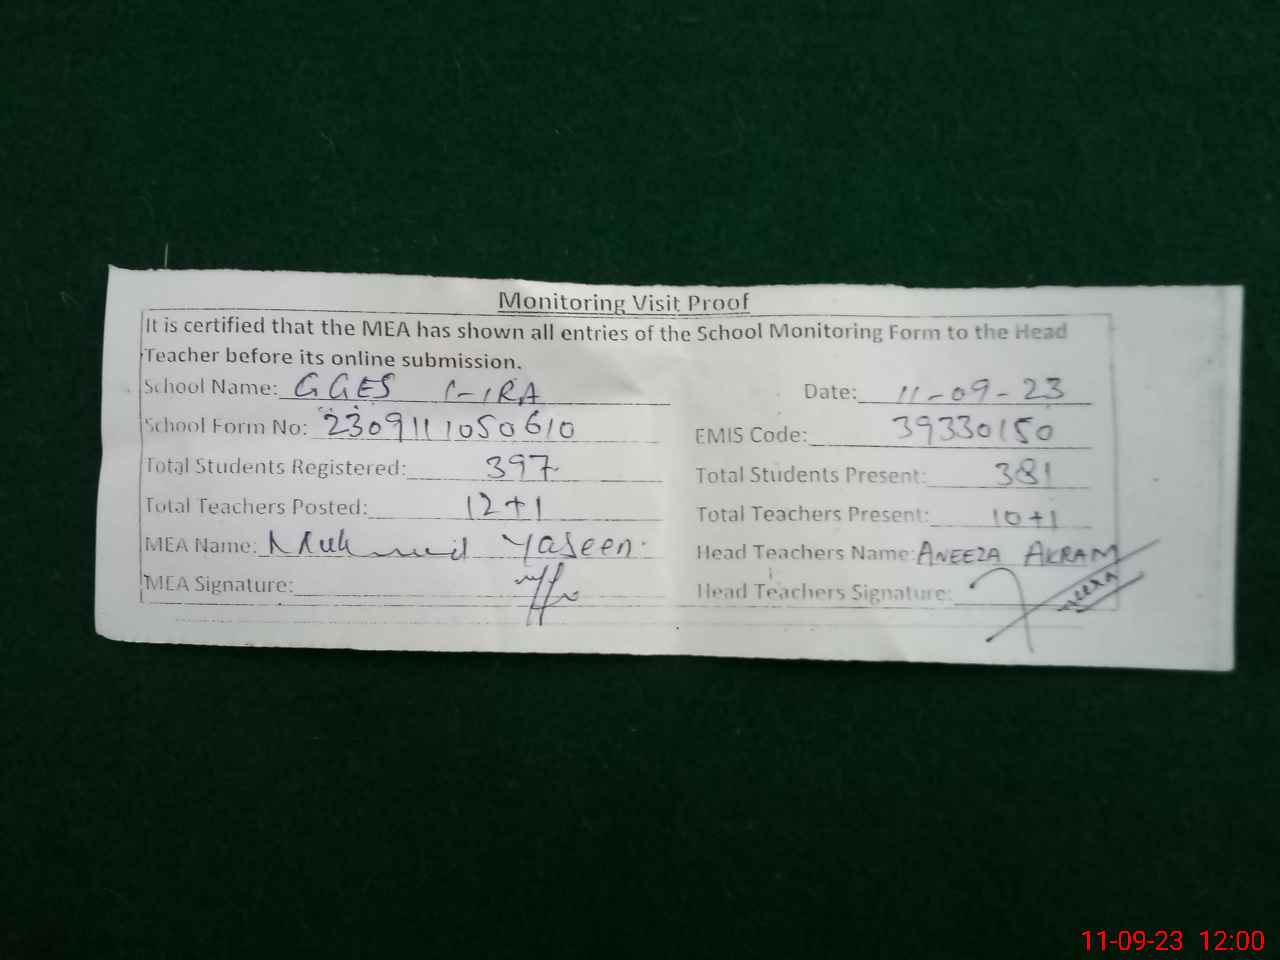 Monitoring Visit Proof
It is certified that the MEA has shown all entries of the School Monitoring Form to the Head
Teacher before its online submission.
School Name: GGES Date: 11-09-23
School Form No: 2309111050610 EMIS Code: 39330150
Total Students Registered: 397 Total Students Present: 381
Total Teachers Posted: 12+1 Total Teachers Present: 10+1
MEA Name: Yaseen Head Teachers Name: ANEEZA AKRAM
MEA Signature: Head Teachers Signature:
11-09-23 12:00